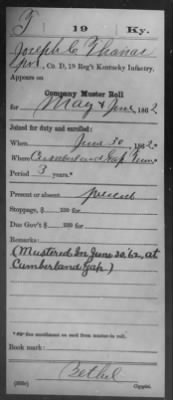 T | 19 | Ky.
Joseph C. Thomas
Pvt., Co. D, 19 Reg't Kentucky Infantry.
Appears on
Company Muster Roll
for May & June, 1862.
Joined for duty and enrolled:
When June 30, 1862
Where Cumberland Gap Tenn
Period 3 years.*
Present or absent present
Stoppage, $ 100 for
Due Gov't $ 100 for
Remarks:
(Mustered In June 30, '62, at
Cumberland Gap.)
*See enrollment on card from muster-in roll.
Book mark:
Bethel
(358c) Copyist.